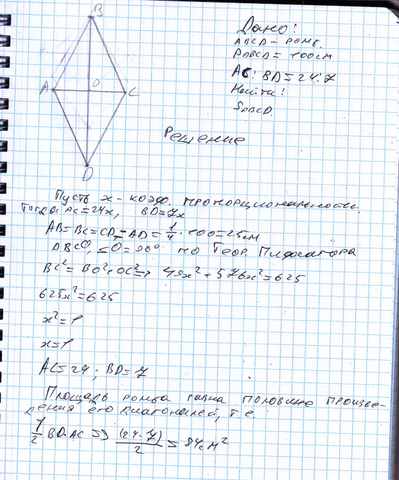 B
A
O
C
D
Дано:
ABCD – ромб.
PABCD = 100см
AC : BD = 24:7
Найти:
SABCD.
Решение
Пусть x – коэф. пропорциональности.
Тогда AC=24x, BD=7x
AB=BC=CD=AD=1/4·100=25см
ΔBCO, ∠O=90° по Теор. Пифагора
BC²=BO²+OC² => 49x²+576x²=625
625x²=625
x²=1
x=1
AC=24; BD=7
Площадь ромба равна половине произве-
дения его диагоналей, т.е.
1/2 BD·AC => (24·7)/2 = 84см²